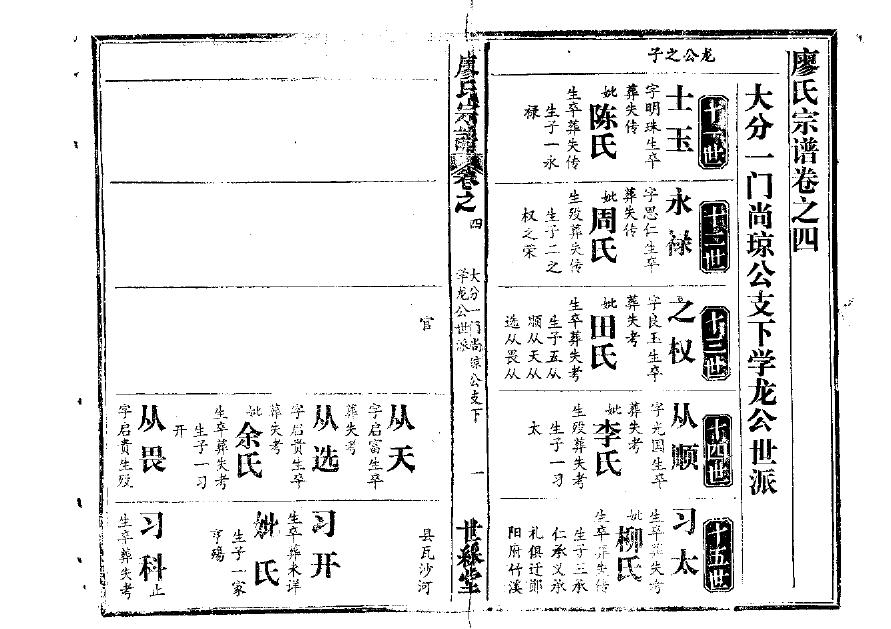 廖氏宗谱卷之四
大分一门尚琼公支下学龙公世派
龙公之子
十一世
士玉
字明珠生卒
葬失传
妣陈氏
生卒葬失传
生子一永
禄
十二世
永禄
字思仁生卒
葬失传
妣周氏
生殁葬失传
生子二之
权之荣
十三世
之权
字良玉生卒
葬失考
妣田氏
生卒葬失考
生子五从
顺从天从
选从畏从
官
十四世
从顺
字元国生卒
葬失考
妣李氏
生殁葬失考
生子一习
太
从天
字启富生卒
葬失考
从选
字启贵生卒
葬失考
妣余氏
生卒葬失考
生子一习
开
从畏
字启贵生殁
十五世
习太
生卒葬失考
妣柳氏
生卒葬失传
生子三承
仁承义承
礼俱迁郧
阳府竹溪
县瓦沙河
习开
生卒葬未详
妣氏
生子一家
亨殇
习科止
生卒葬失考
廖氏宗谱卷之四
大分一门尚琼公支下
学龙公世派
一
世䌽堂